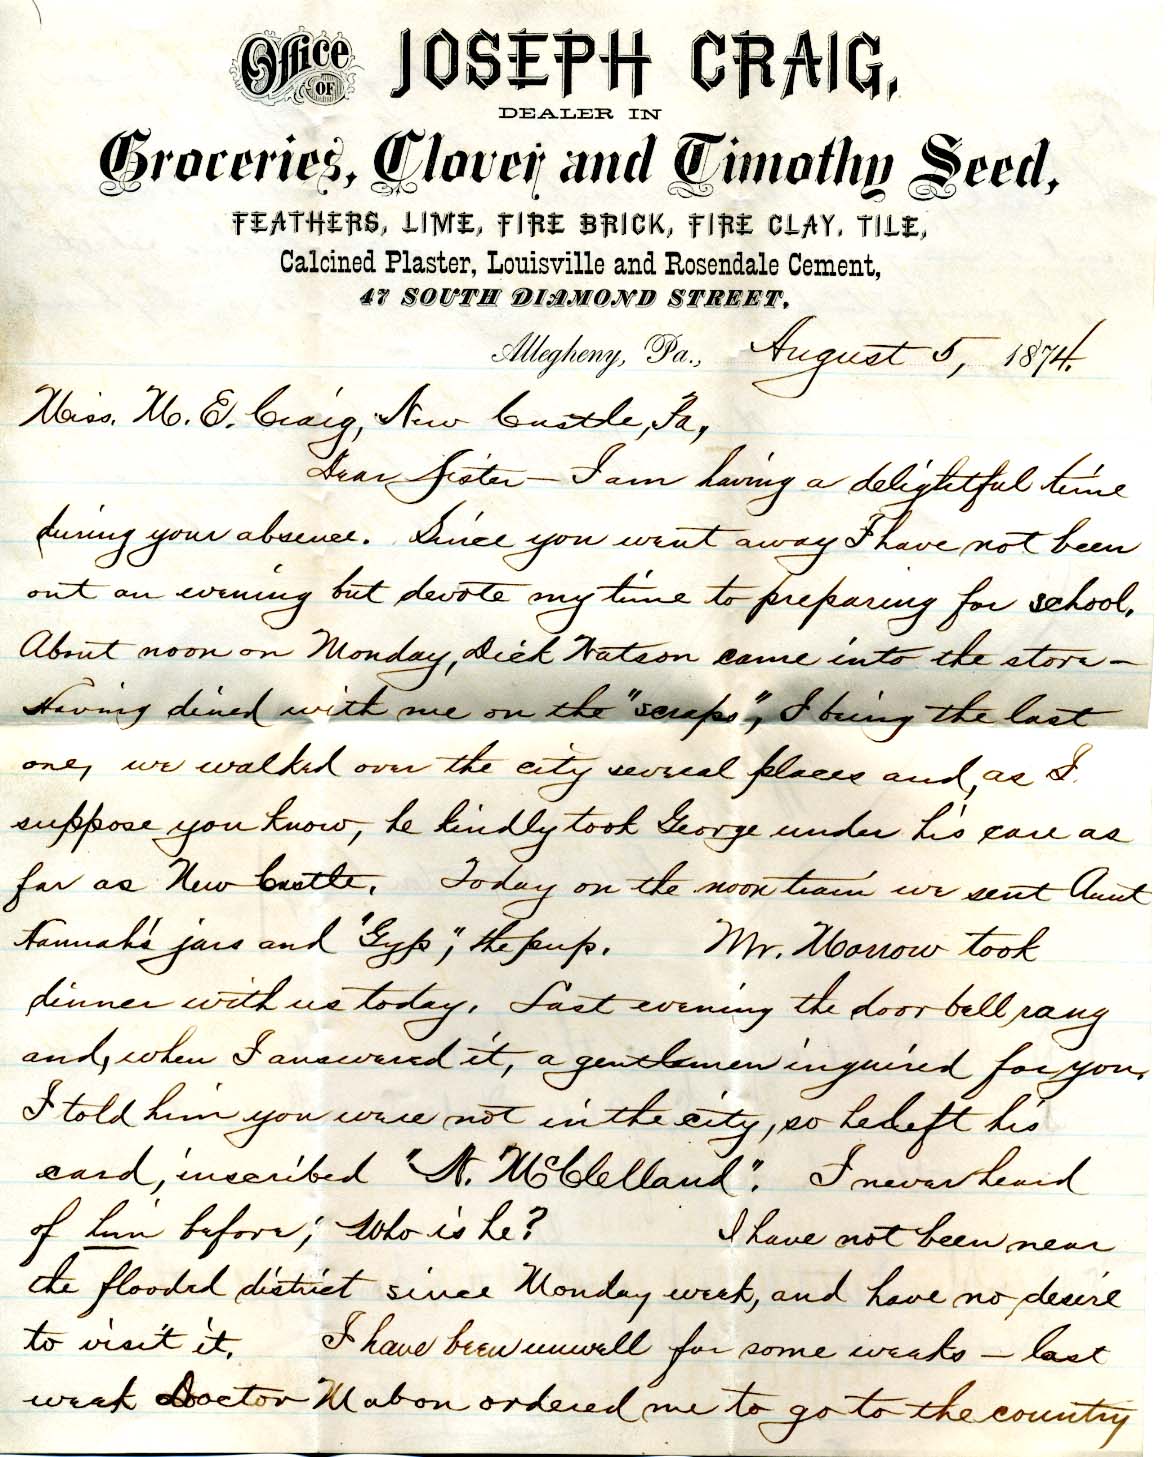 Office OF JOSEPH CRAIG,
DEALER IN
Groceries, Clover and Timothy Seed,
FEATHERS, LIME, FIRE BRICK, FIRE CLAY, TILE,
Calcined Plaster, Louisville and Rosendale Cement,
47 SOUTH DIAMOND STREET.
Allegheny, Pa., August 5, 1874.
Miss. M. E. Craig, New Castle, Pa,
Dear Sister — I am having a delightful time
during your absence. Since you went away I have not been
out an evening but devote my time to preparing for school.
About noon on Monday, Dick Watson came into the store —
Having dined with me on the "scraps", I being the last
one, we walked over the city several places and, as I
suppose you know, he kindly took George under his care as
far as New Castle. Today on the noon train we sent Aunt
Hannah's jars and "Gyp", the pup. Mr. Morrow took
dinner with us today. Last evening the door bell rang
and, when I answered it, a gentlemen inquired for you.
I told him you were not in the city, so he left his
card, inscribed "N. McClelland". I never heard
of him before; Who is he? I have not been near
the flooded district since Monday week, and have no desire
to visit it. I have been unwell for some weeks — last
week Doctor Mabon ordered me to go to the country